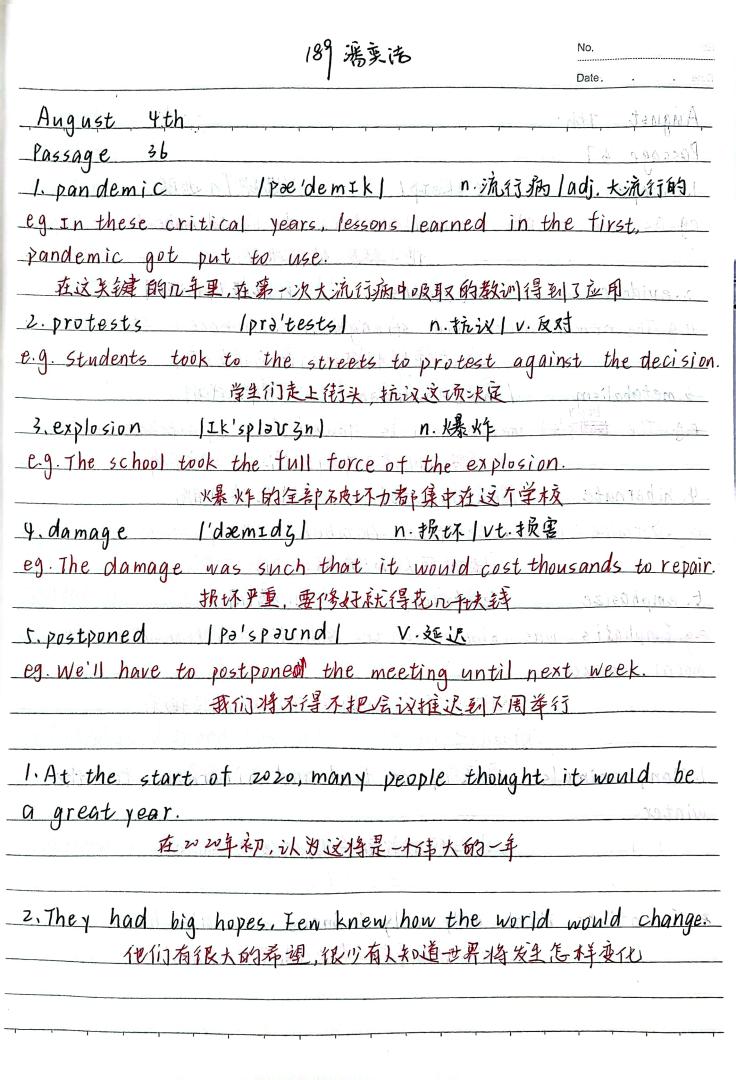 189 潘奕洁
No.
Date. . .
August 4th
Passage 36
1. pandemic |pæ'demɪk| n.流行病 |adj.大流行的
eg. In these critical years, lessons learned in the first,
pandemic got put to use.
在这关键的几年里,在第一次大流行病中吸取的教训得到了应用
2. protests |prə'tests| n.抗议| v.反对
e.g. Students took to the streets to protest against the decision.
学生们走上街头,抗议这项决定
3. explosion |ɪk'spləʊʒn| n.爆炸
e.g. The school took the full force of the explosion.
爆炸的全部破坏力都集中在这个学校
4. damage |'dæmɪdʒ| n.损坏 |vt.损害
eg. The damage was such that it would cost thousands to repair.
损坏严重,要修好就得花几千块钱
5. postponed |pə'spəʊnd| v.延迟
eg. We'll have to postpone the meeting until next week.
我们将不得不把会议推迟到下周举行
1. At the start of 2020, many people thought it would be
a great year.
在2020年初,认为这将是一个伟大的一年
2. They had big hopes. Few knew how the world would change.
他们有很大的希望,很少有人知道世界将发生怎样变化